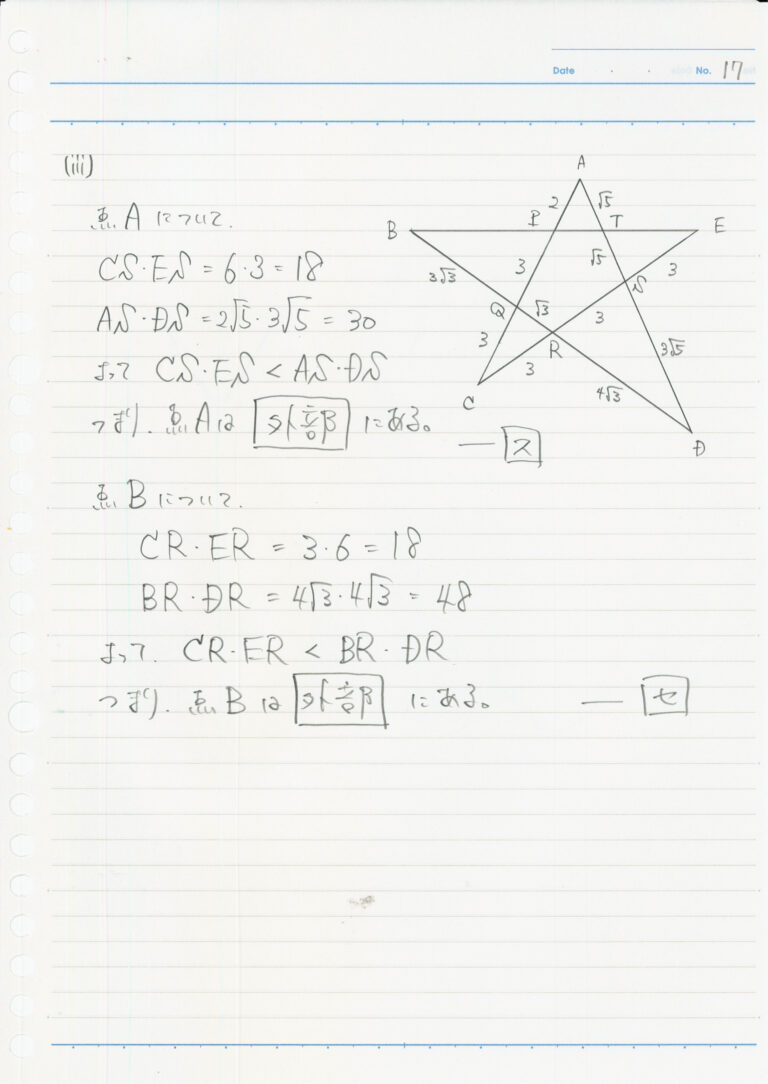 Date No. 17
(iii)
点Aについて.
CS・ES = 6・3 = 18
AS・DS = 2√5・3√5 = 30
よって CS・ES < AS・DS
つまり. 点Aは 外部 にある。 ― ス
A
2 √5
B P T E
3√3 3 √5 3
Q √3 S
3 3
R 3√5
3
C 4√3
D
点Bについて.
CR・ER = 3・6 = 18
BR・DR = 4√3・4√3 = 48
よって. CR・ER < BR・DR
つまり. 点Bは 外部 にある。 ― セ